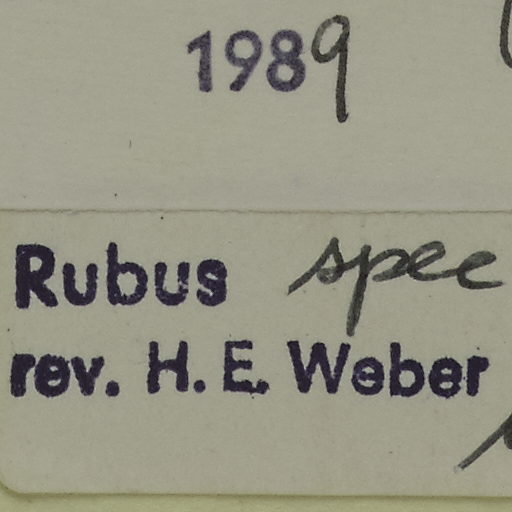 1989
Rubus spec
rev. H. E. Weber